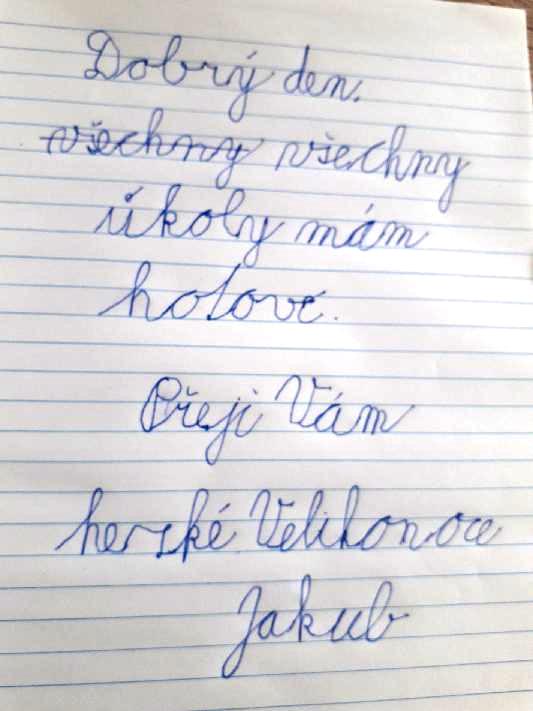 Dobrý den.
všechny všechny
úkoly mám
hotové.
Přeji Vám
herské Velikonoce
Jakub